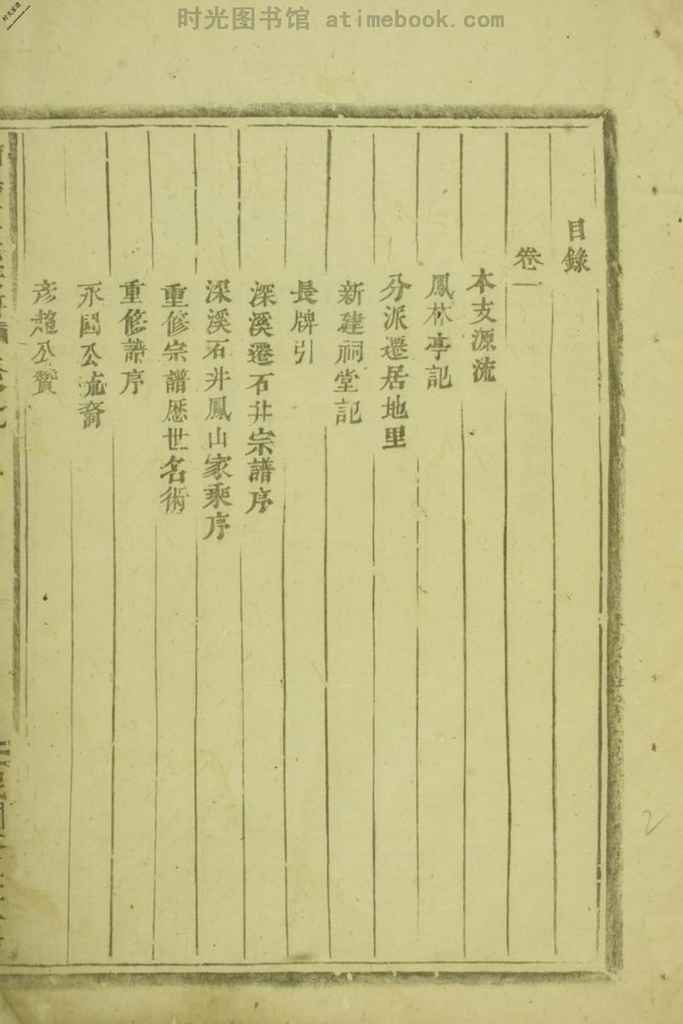 时光图书馆 atimebook.com
目錄
卷一
本支源流
鳳林亭記
分派遷居地里
新建祠堂記
長牌引
深溪遷石井宗譜序
深溪石井鳳山家乘序
重修宗譜歷世名術
重修譜序
永國公流裔
彥趙公贊